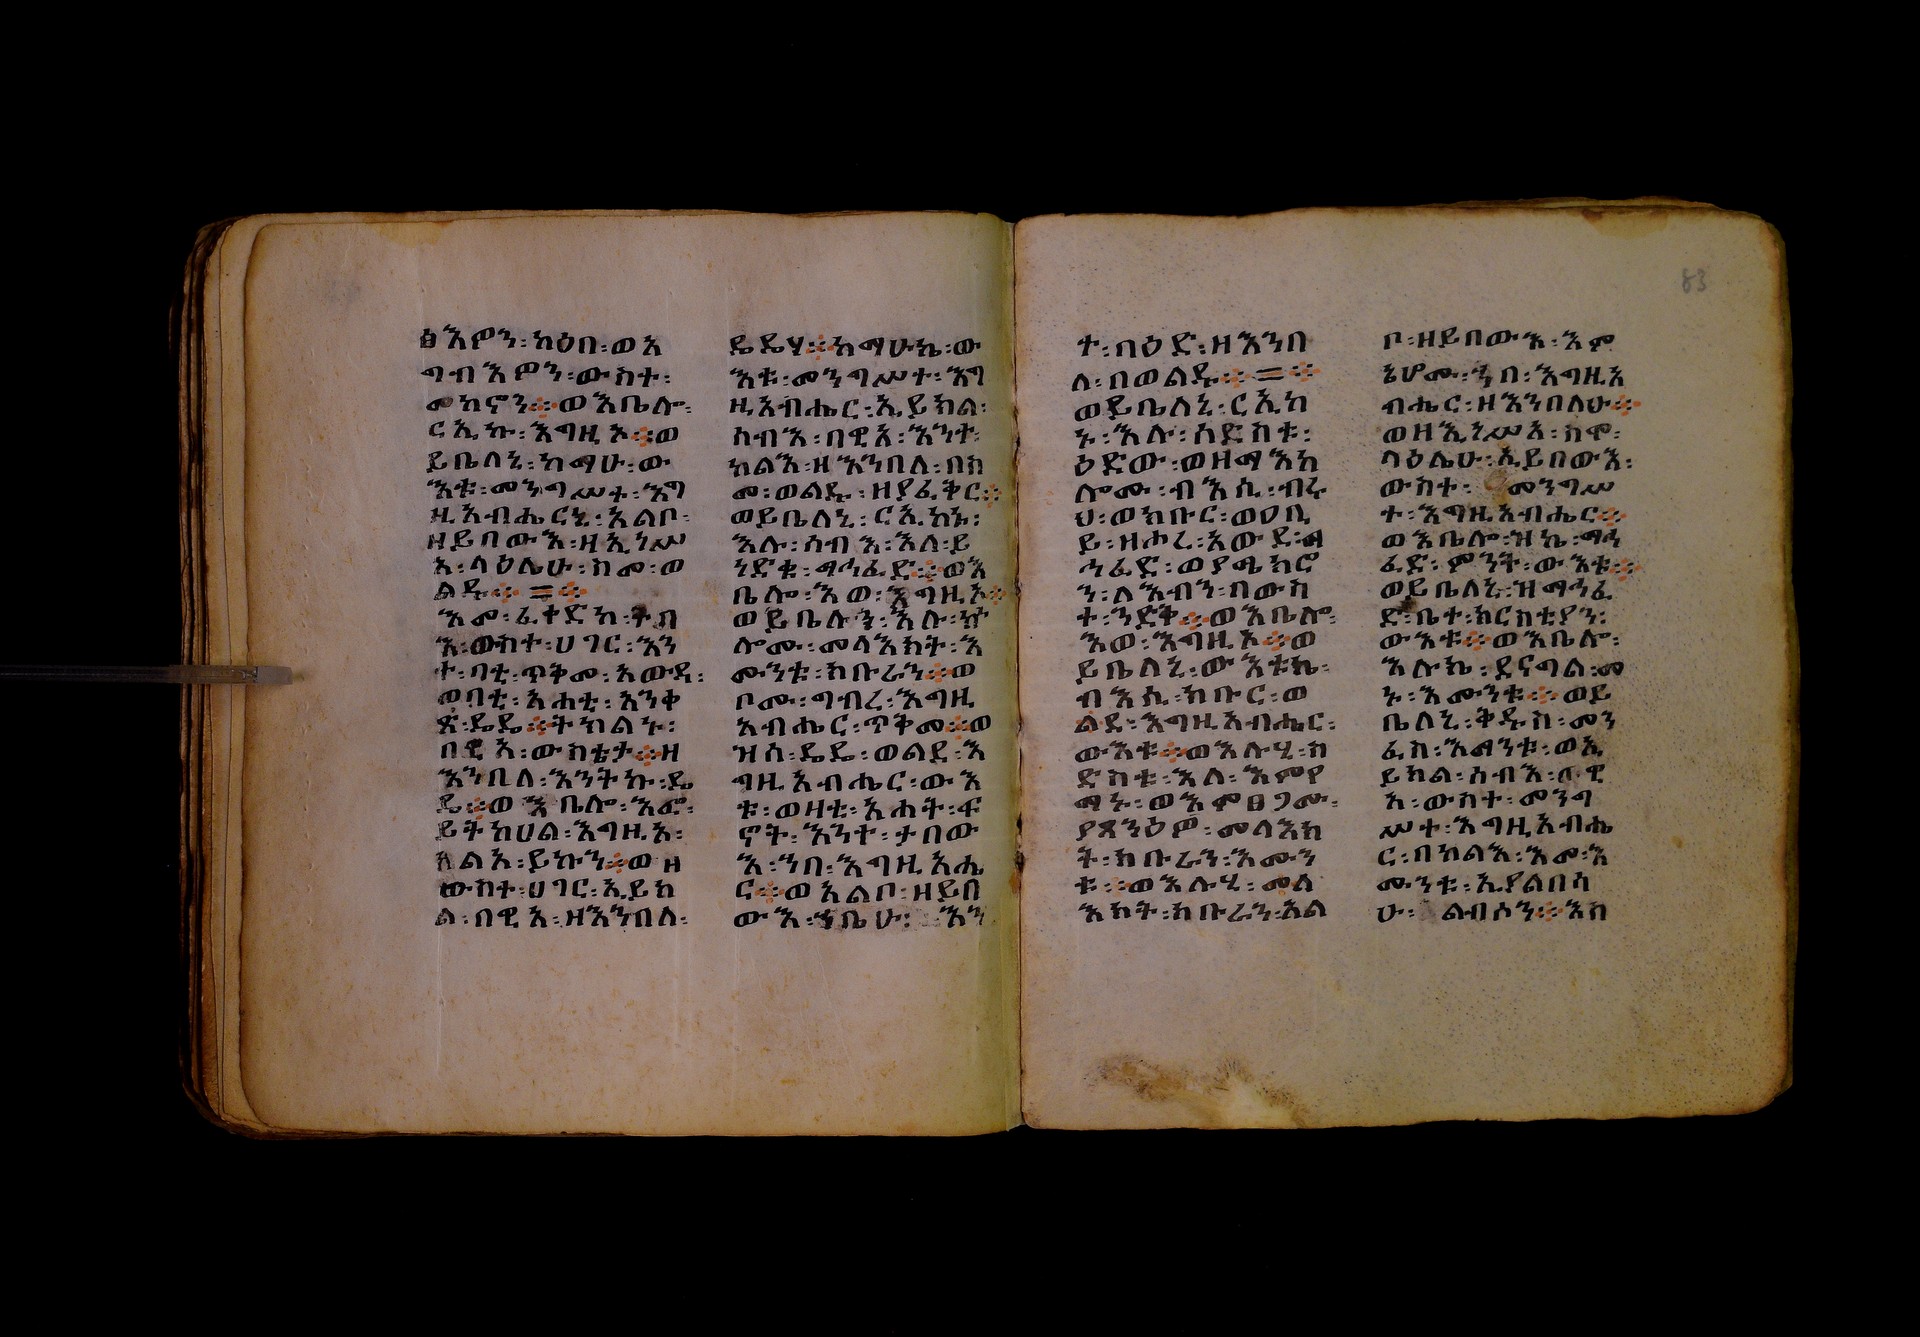 ፅእሞን፡ካዕበ፡ወአ
ግብእሞን፡ውስተ፡
መካኖን።ወእቤሎ፡
ርኢኩ፡እግዚኦ።ወ
ይቤለኒ፡ከማሁ፡ው
እቱ፡መንግሥተ፡እግ
ዚአብሔርኒ፡አልቦ፡
ዘይበውእ፡ዘኢነሥ
አ፡ላዕሌሁ፡ስመ፡ወ
ልዱ።=።
እመ፡ፈቀድከ፡ትባ
እ፡ውስተ፡ሀገር፡እን
ተ፡ባቲ፡ጥቅመ፡አውዳ፡
ወባቲ፡አሐቲ፡አንቀ
ጽ፡ዴዴ።ትክልኑ፡
በዊአ፡ውስቴታ።ዘ
እንበለ፡እንትኩ፡ዴ
ዴ።ወእቤሎ፡እፎ፡
ይትከሀል፡እግዚእ፡
ካልእ፡ይኩን።ወዘ
ውስተ፡ሀገር፡ኢይክ
ል፡በዊአ፡ዘእንበለ፡
ዴዴሃ።ከማሁኬ፡ው
እቱ፡መንግሥተ፡እግ
ዚአብሔር፡ኢይክል፡
ሰብእ፡በዊአ፡እንተ፡
ካልእ፡ዘእንበለ፡በስ
መ፡ወልዱ፡ዘያፈቅር።
ወይቤለኒ፡ርኢከኑ፡
እሉ፡ሰብእ፡እለ፡ይ
ነድቁ፡ማኅፈድ።ወእ
ቤሎ፡እወ፡እግዚኦ።
ወይቤሉኒ፡እሉ፡ኵ
ሎሙ፡መላእክት፡እ
ሙንቱ፡ክቡራን።ወ
ቦሙ፡ግብረ፡እግዚ
አብሔር፡ጥቅመ።ወ
ዝሰ፡ዴዴ፡ወልደ፡እ
ግዚአብሔር፡ውእ
ቱ፡ወዛቲ፡አሐት፡ፍ
ኖት፡እንተ፡ታበው
እ፡ኀበ፡እግዚአሔ
ር።ወአልቦ፡ዘይበ
ውእ፡ኀቤሁ፡እን
ተ፡በዕድ፡ዘእንበ
ለ፡በወልዱ።=።
ወይቤለኒ፡ርኢከ
ኑ፡እሉ፡ስድስቱ፡
ዕድው፡ወዘማእከ
ሎሙ፡ብእሲ፡ብሩ
ህ፡ወክቡር፡ወዐቢ
ይ፡ዘሖረ፡አውደ፡ማ
ኅፈድ፡ወያጤክሮ
ን፡ለእብን፡በውስ
ተ፡ንድቅ።ወእቤሎ፡
እወ፡እግዚኦ።ወ
ይቤለኒ፡ውእቱኬ፡
ብእሲ፡ክቡር፡ወ
ልደ፡እግዚአብሔር፡
ውእቱ።ወእሉሂ፡ስ
ድስቱ፡እለ፡እምየ
ማኑ፡ወእምፀጋሙ፡
ያጸንዕዎ፡መላእክ
ት፡ክቡራን፡እሙን
ቱ።ወእሉሂ፡መለ
እክት፡ክቡራን፡አል
ቦ፡ዘይበውእ፡እም
ኔሆሙ፡ኀበ፡እግዚአ
ብሔር፡ዘእንበለሁ።
ወዘኢነሥአ፡ስሞ፡
ላዕሌሁ፡ኢይበውእ፡
ውስተ፡መንግሥ
ተ፡እግዚአብሔር።
ወእቤሎ፡ዝኬ፡ማኅ
ፈድ፡ምንት፡ውእቱ።
ወይቤለኒ፡ዝማኅፈ
ድ፡ቤተ፡ክርስቲያን፡
ውእቱ።ወእቤሎ፡
እሉኬ፡ደናግል፡መ
ኑ፡እሙንቱ።ወይ
ቤለኒ፡ቅዱስ፡መን
ፈስ፡እማንቱ፡ወኢ
ይክል፡ሰብእ፡በዊ
አ፡ውስተ፡መንግ
ሥተ፡እግዚአብሔ
ር፡በካልእ፡እመ፡እ
ሙንቱ፡ኢያልበሳ
ሁ፡ልብሶን።እስ
83